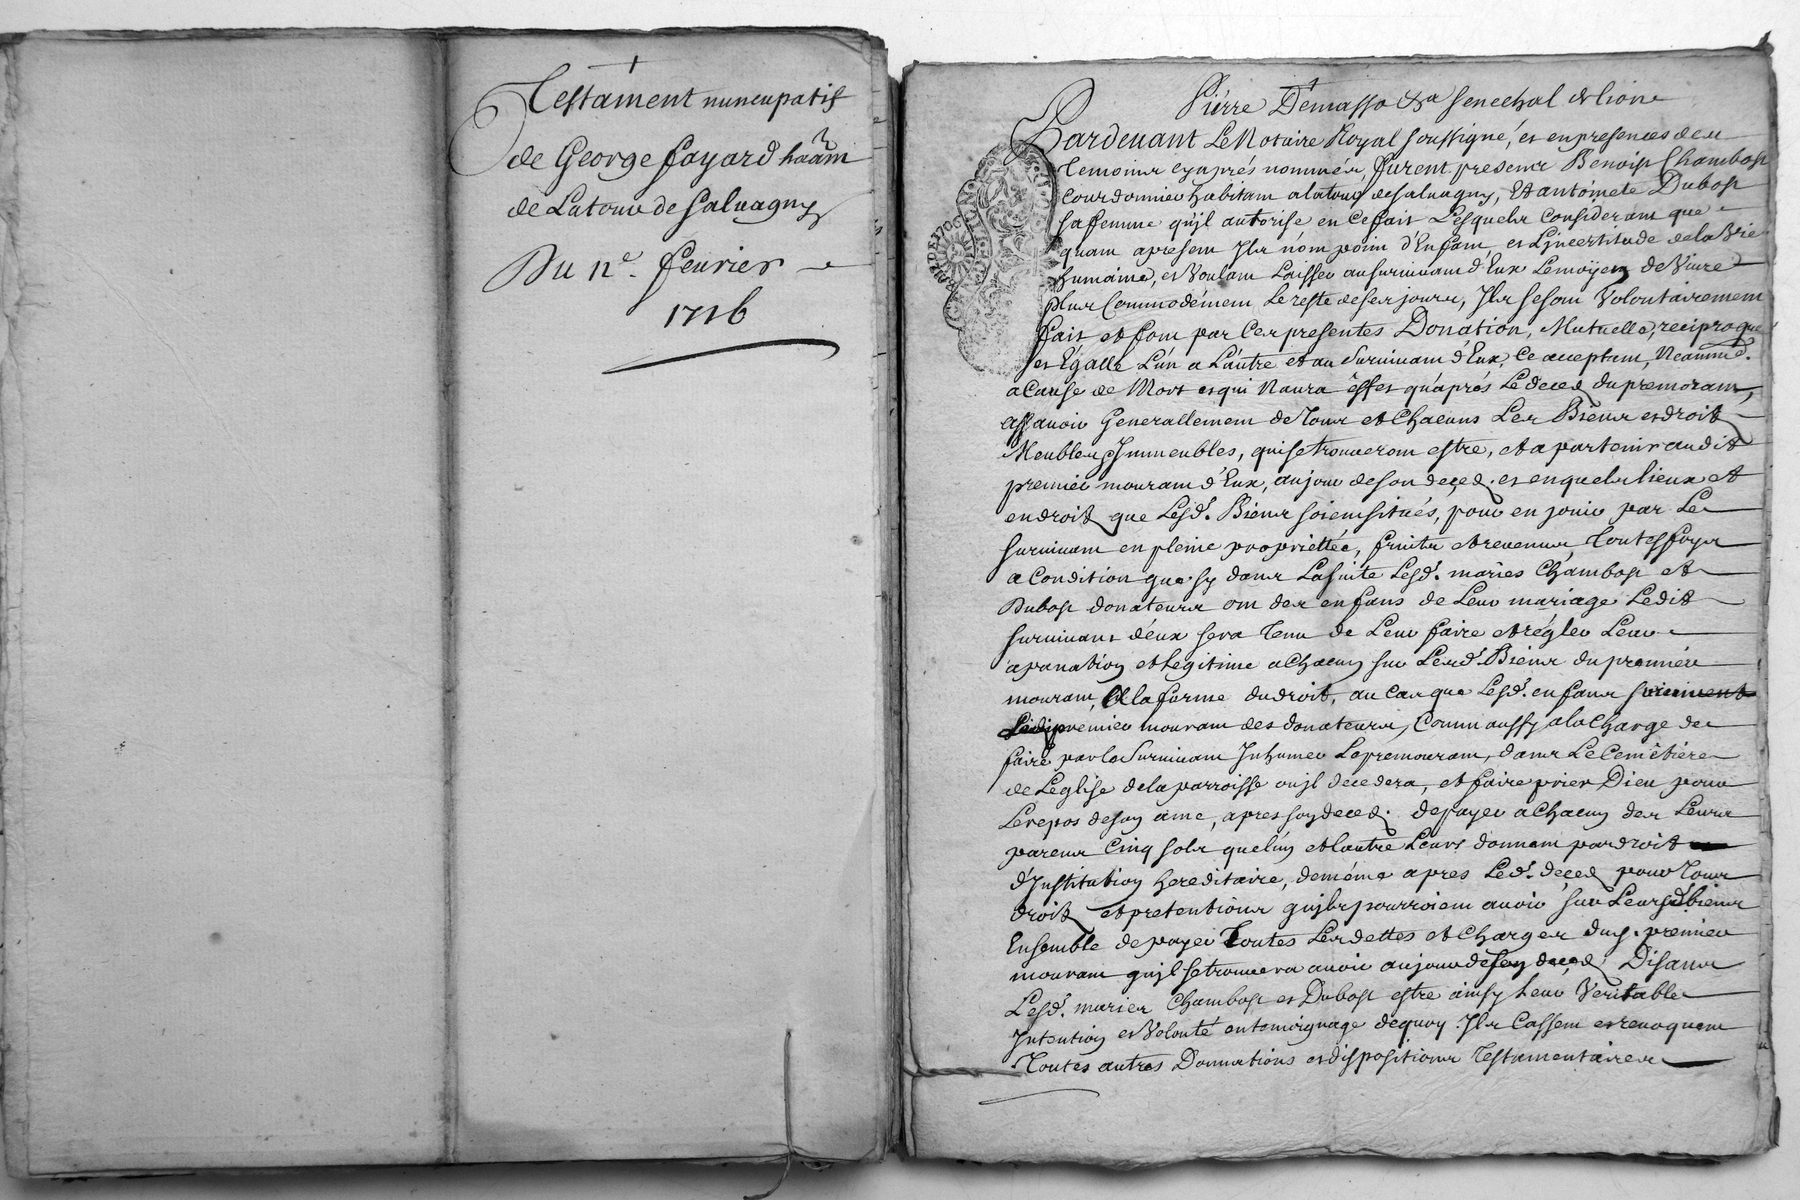 Testament nuncupatif
de George fayard haam
de Latour de Salvagny
Du 12e. fevrier
1716
Pierre Demasso &a Senechal de lion
Pardevant Le Notaire Royal soussigné, et en presences des
temoins cy aprés nommés, furent presens Benoist Chambost
Courdonnier habitant a la tour de Salvagny, Et antoinete Dubost
sa femme qu'jl autorise en Ce fait Lesquels Considerant que
quant a present Jls n'ont point d'Enfant, et L'jncertitude de la Vie
humaine, et Voulant Laisser au survivant d'Eux Le moÿen de Vivre
plus Commodément Le reste de ses jours, Jls se sont Volontairement
fait et font par Ces presentes Donation, Mutuelle, reciproque
et Égalle L'un a L'autre et au Survivant d'Eux, Ce acceptant, Neanmd.
a Cause de Mort et qui N'aura éffet qu'aprés Le deced du premourant,
assavoir Generallement de Tous et Chacuns Les Biens et droits
Meubles, Jmmeubles, qui se trouveront estre, et apartenir audit
premier mourant d'Eux, au jour de son deced, et en quels lieux et
endroits que Lesd. Biens soient situés, pour en jouir par Le
survivant en pleine proprieté, fruits et revenus, Toutesfoys
a Condition que sy dans La suite Lesd. mariés Chambost et
Dubost donateurs ont des enfans de Leur mariage Ledit
survivant d'eux sera tenu de Leur faire et régler Leur
apanation et Legitime a Chacun sur Lesd. Biens du premier
mourant, A la forme du droit, au Cas que Lesd. enfans survivent
Ledit premier mourant des donateurs, Comm aussy a la Charge de
faire par le Survivant Jnhumer Le premourant, dans Le Cemêtiere
de L'eglise de la parroisse ou jl decedera, et faire prier Dieu pour
Le repos de son ame, apres son deced. de payer a Chacun des Leurs
parens Cinq sols que l'un et l'autre Leurs donnent par droit
d'Jnstitution hereditaire, de méme apres Led. deced, pour Tous
droits et pretentions qu'jls pourroient avoir sur Leursd. biens
Ensemble de payer Toutes Les dettes et Charges dud. premier
mourant qu'jl se trouvera avoir au jour de son deced Disans
Lesd. mariés Chambost et Dubost estre ainsy Leur Veritable
Jntention et Volonté en temoignage de quoy Jls Cassent et revoquent
Toutes autres Donnations et dispositions Testamentaires